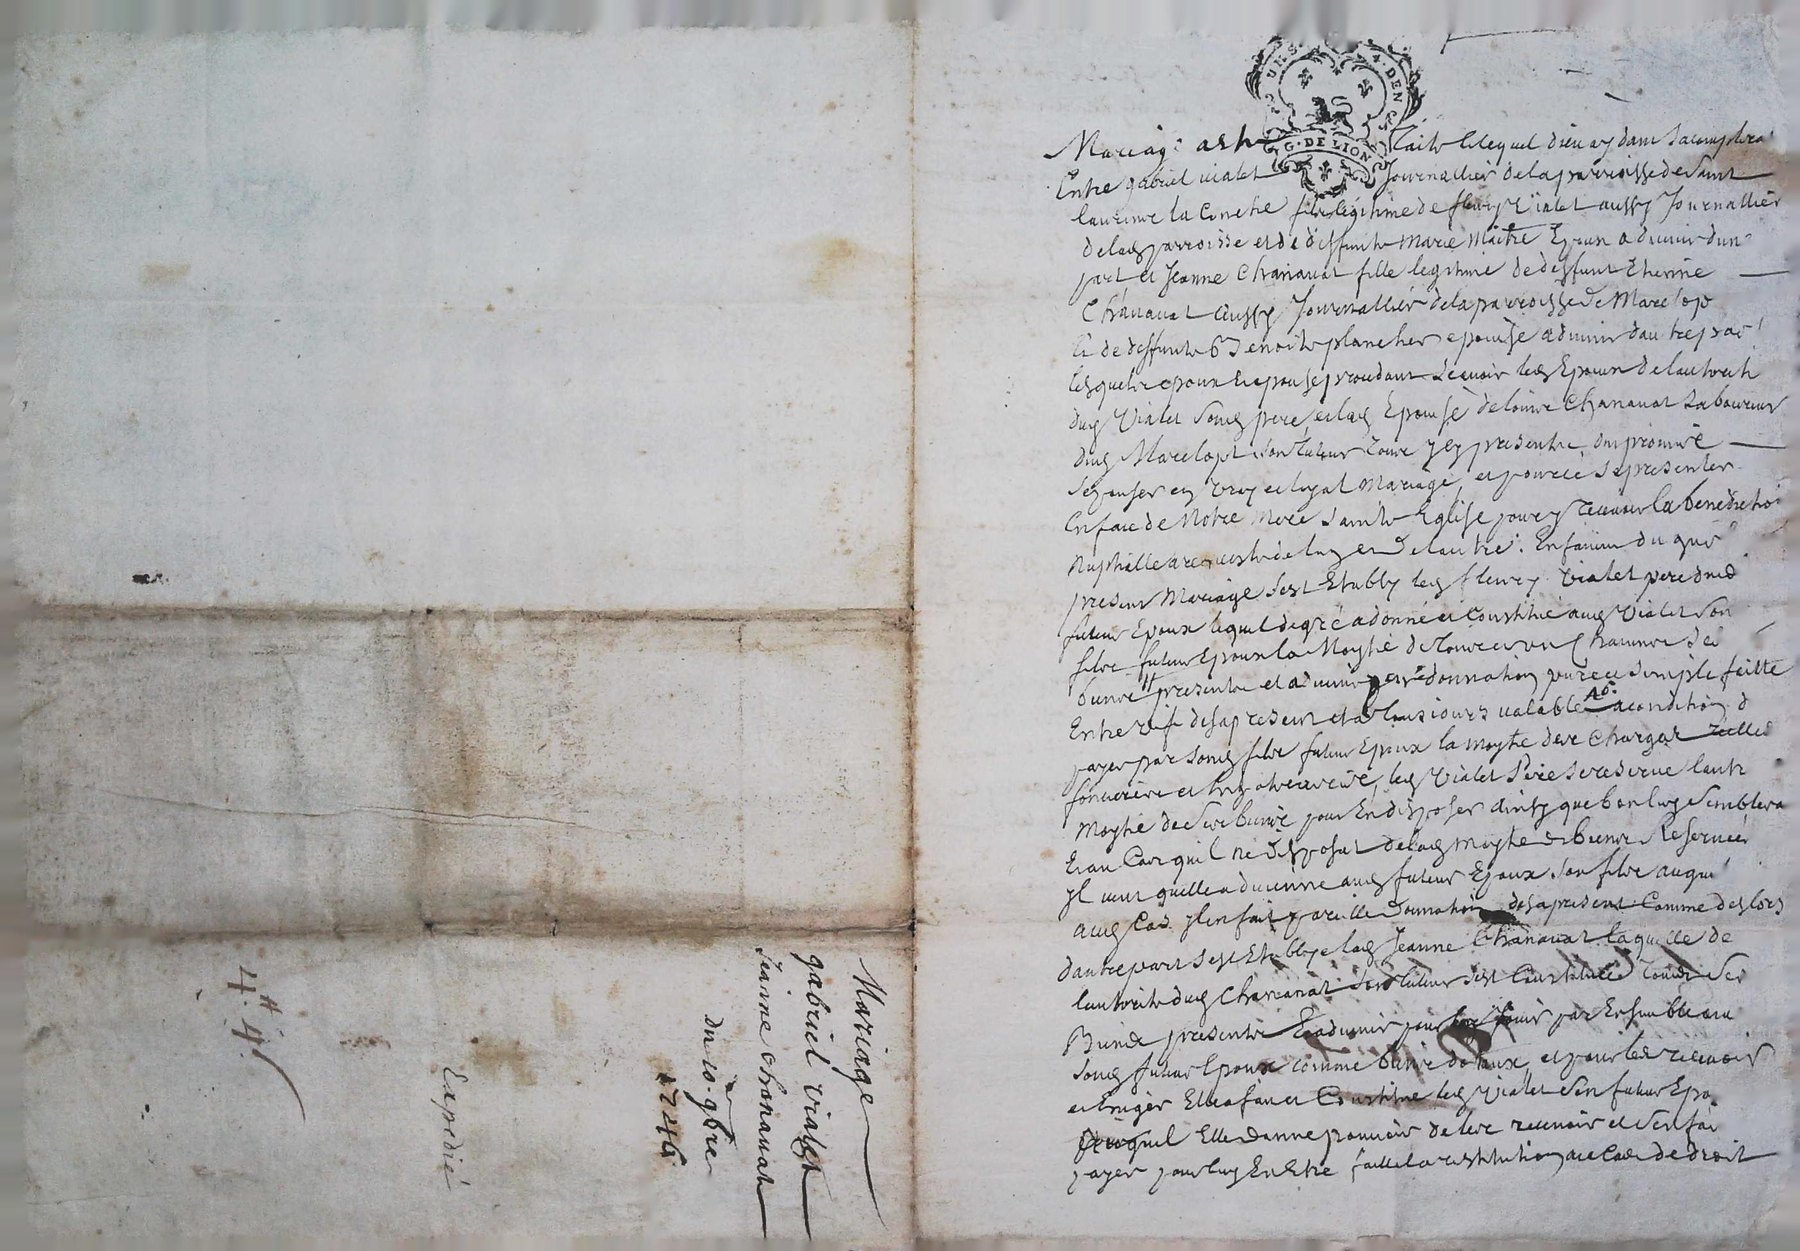 Mariage
gabriel vialet
Jeanne chanavat
du 10e 9bre
1746
Expedié
4# 4s
G. DE LION
Mariage
Entre gabriel vialet Journallier de la parroisse de Saint
laurens la Conche fils legitime de fleury Vialet aussy Journallier
delad parroisse et de deffunte Marie Maitre Epoux advenir d'un
part et Jeanne Chanavat fille legitime de deffunt Etienne
Chanavat aussy Journallier de la parroisse de Marclopt
et de deffunte Benoite plancher epouse advenir dautre part
lesquels epoux et epouse procedant scavoir led Epoux de lautorite
dud Vialet Sond pere et lad Epouse de Chanavat Laboureur
dud Marclopt son Tuteur Tous Icy presents ont promis
sepouser en vray et loyal Mariage et pource se presenter
En face de Notre Mere Sainte Eglise pour y recevoir la benediction
Nuptialle a requeste de lun et de lautre. En faveur du quel
present Mariage sest Etably led fleury Vialet pere dud
futur Epoux lequel de gré a donné et Constitué aud Vialet Son
fils futur Epoux la Moytié de Tous et un Chacuns Ses
biens presents et advenir par donnation pure et simple faitte
Entre vif des a present et a Tousiours valable a condition de
payer par Sond fils futur Epoux la moytié des Charges reelles
foncieres et led Vialet Pere se reserve lautre
Moytié de Ses biens pour En disposer ainsy que bon luy Semblera
Et au Cas quil ne disposat delad moytié de biens Reservée
Il veut quelle advienne aud futur Epoux Son fils auquel
aud Cas Il en fait pareille donnation des a present Comme des lors
dautre part sest Etablye lad Jeanne Chanavat laquelle de
lautorite dud Chanavat Son Tuteur sest Constituée Tous Ses
Biens presents Et advenir pour Jouir par Ensemble au
Sond futur Epoux comme biens dotaux et pour les recevoir
et Exiger Elle a fait et Constitue led Vialet Son futur Epoux
auquel Elle donne pouvoir de les recevoir et Sen faire
payer pour luy En Etre faitte la restitution au Cas de droit